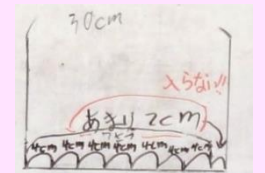 30cm
入らない!!
あまり2cm
4cm 4cm 4cm 4cm 4cm 4cm 4cm